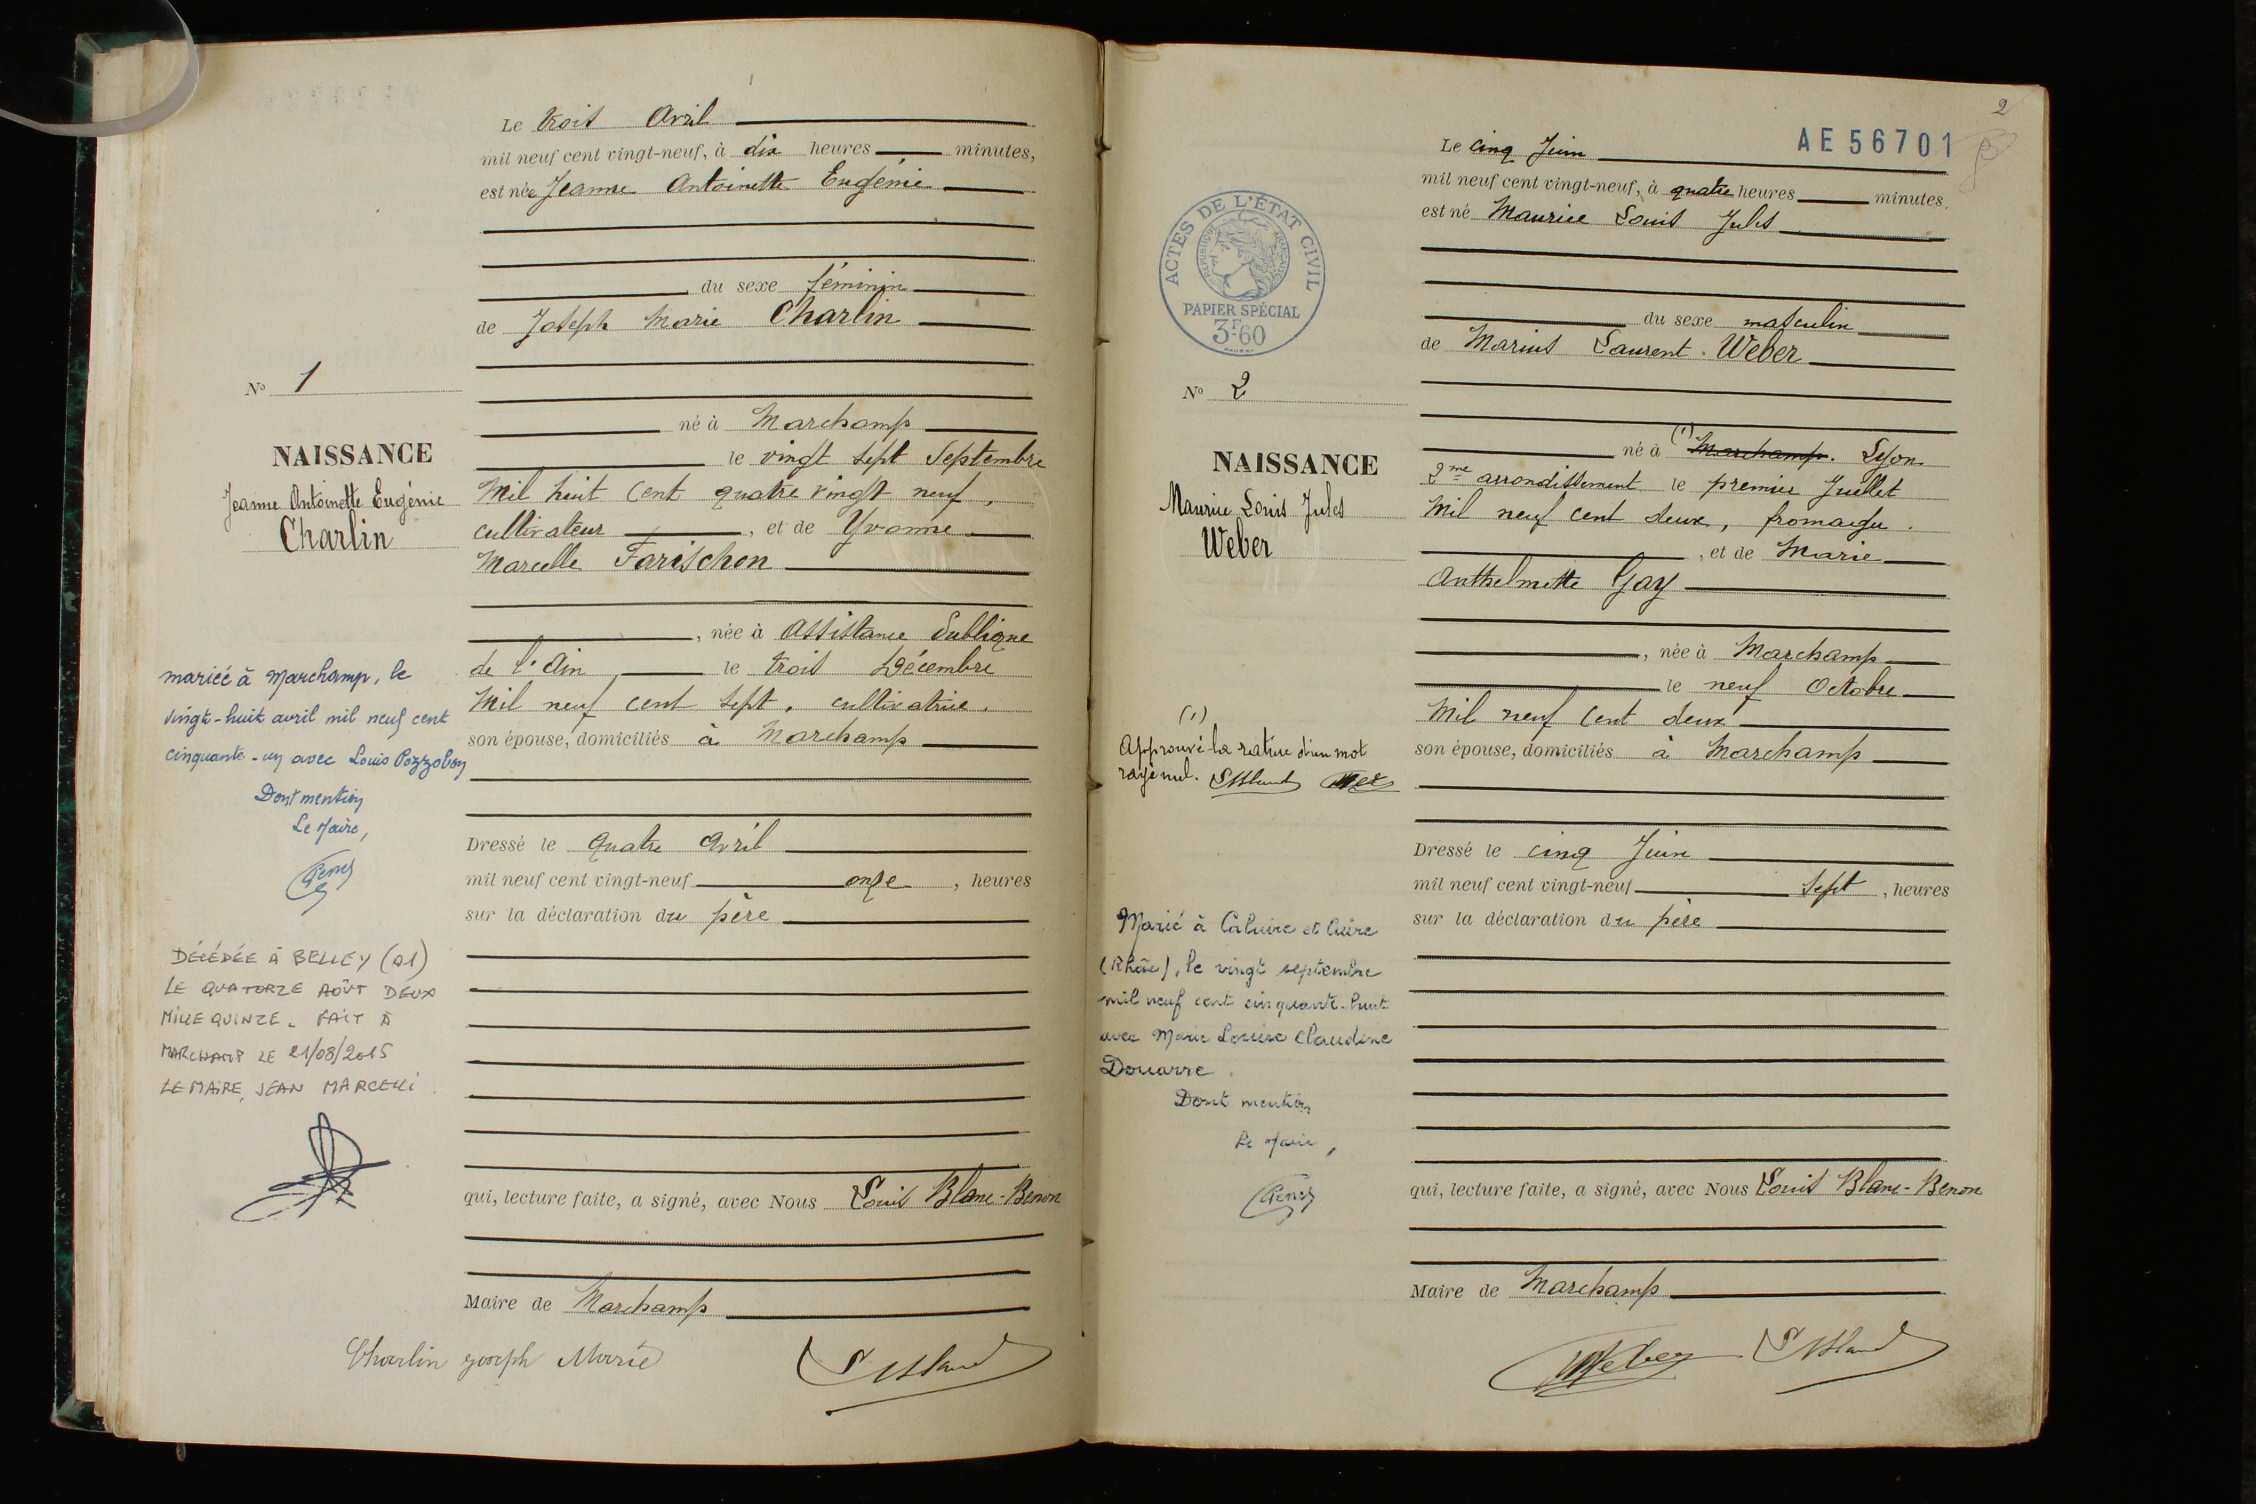 Le trois Avril
mil neuf cent vingt-neuf, à dix heures minutes,
est née Jeanne Antoinette Eugénie
du sexe féminin
de Joseph Marie Charlin
né à Marchamp
le vingt sept Septembre
Mil huit cent quatre vingt neuf,
cultivateur, et de Yvonne
Marcelle Farischon
, née à Assistance Publique
de l'Ain le trois Décembre
Mil neuf cent sept, cultivatrice.
son épouse, domiciliés à Marchamp
Dressé le quatre Avril
mil neuf cent vingt-neuf onze, heures
sur la déclaration du père
qui, lecture faite, a signé, avec Nous Louis Blanc-Benon
Maire de Marchamp
Charlin joseph Marie
No 1
NAISSANCE
Jeanne Antoinette Eugénie
Charlin
mariée à Marchamp, le
vingt-huit avril mil neuf cent
cinquante-un avec Louis Pozzobon
Dont mention
Le Maire,
DÉCÉDÉE À BELLEY (01)
LE QUATORZE AOÛT DEUX
MILLE QUINZE. FAIT À
MARCHAMP LE 21/08/2015
LE MAIRE, JEAN MARCELLI
2
AE 56701
Le cinq Juin
mil neuf cent vingt-neuf, à quatre heures minutes.
est né Maurice Louis Jules
du sexe masculin
de Marius Laurent Weber
né à (1) Marchamp. Lyon
2me arrondissement le premier Juillet
Mil neuf cent deux, fromager.
, et de Marie
Anthelmette Gay
, née à Marchamp
le neuf Octobre
Mil neuf cent deux
son épouse, domiciliés à Marchamp
Dressé le cinq Juin
mil neuf cent vingt-neuf sept, heures
sur la déclaration du père
qui, lecture faite, a signé, avec Nous Louis Blanc-Benon
Maire de Marchamp
Weber
ACTES DE L'ÉTAT CIVIL
RÉPUBLIQUE FRANÇAISE
PAPIER SPÉCIAL
3F60
No 2
NAISSANCE
Maurice Louis Jules
Weber
(1)
Approuvé la rature d'un mot
rayé nul.
Marié à Caluire et Cuire
(Rhône), le vingt septembre
mil neuf cent cinquante-huit
avec Marie Louise Claudine
Douarre.
Dont mention
Le Maire,